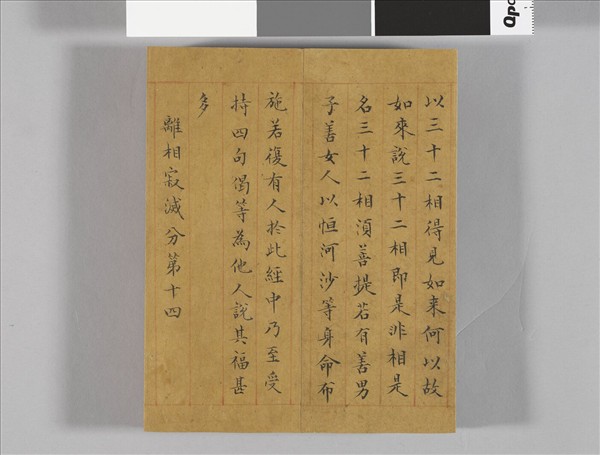 以三十二相得見如来何以故
如來說三十二相即是非相是
名三十二相湏菩提若有善男
子善女人以恒河沙等身命布
施若復有人於此經中乃至受
持四句偈等為他人說其福甚
多
離相寂滅分第十四